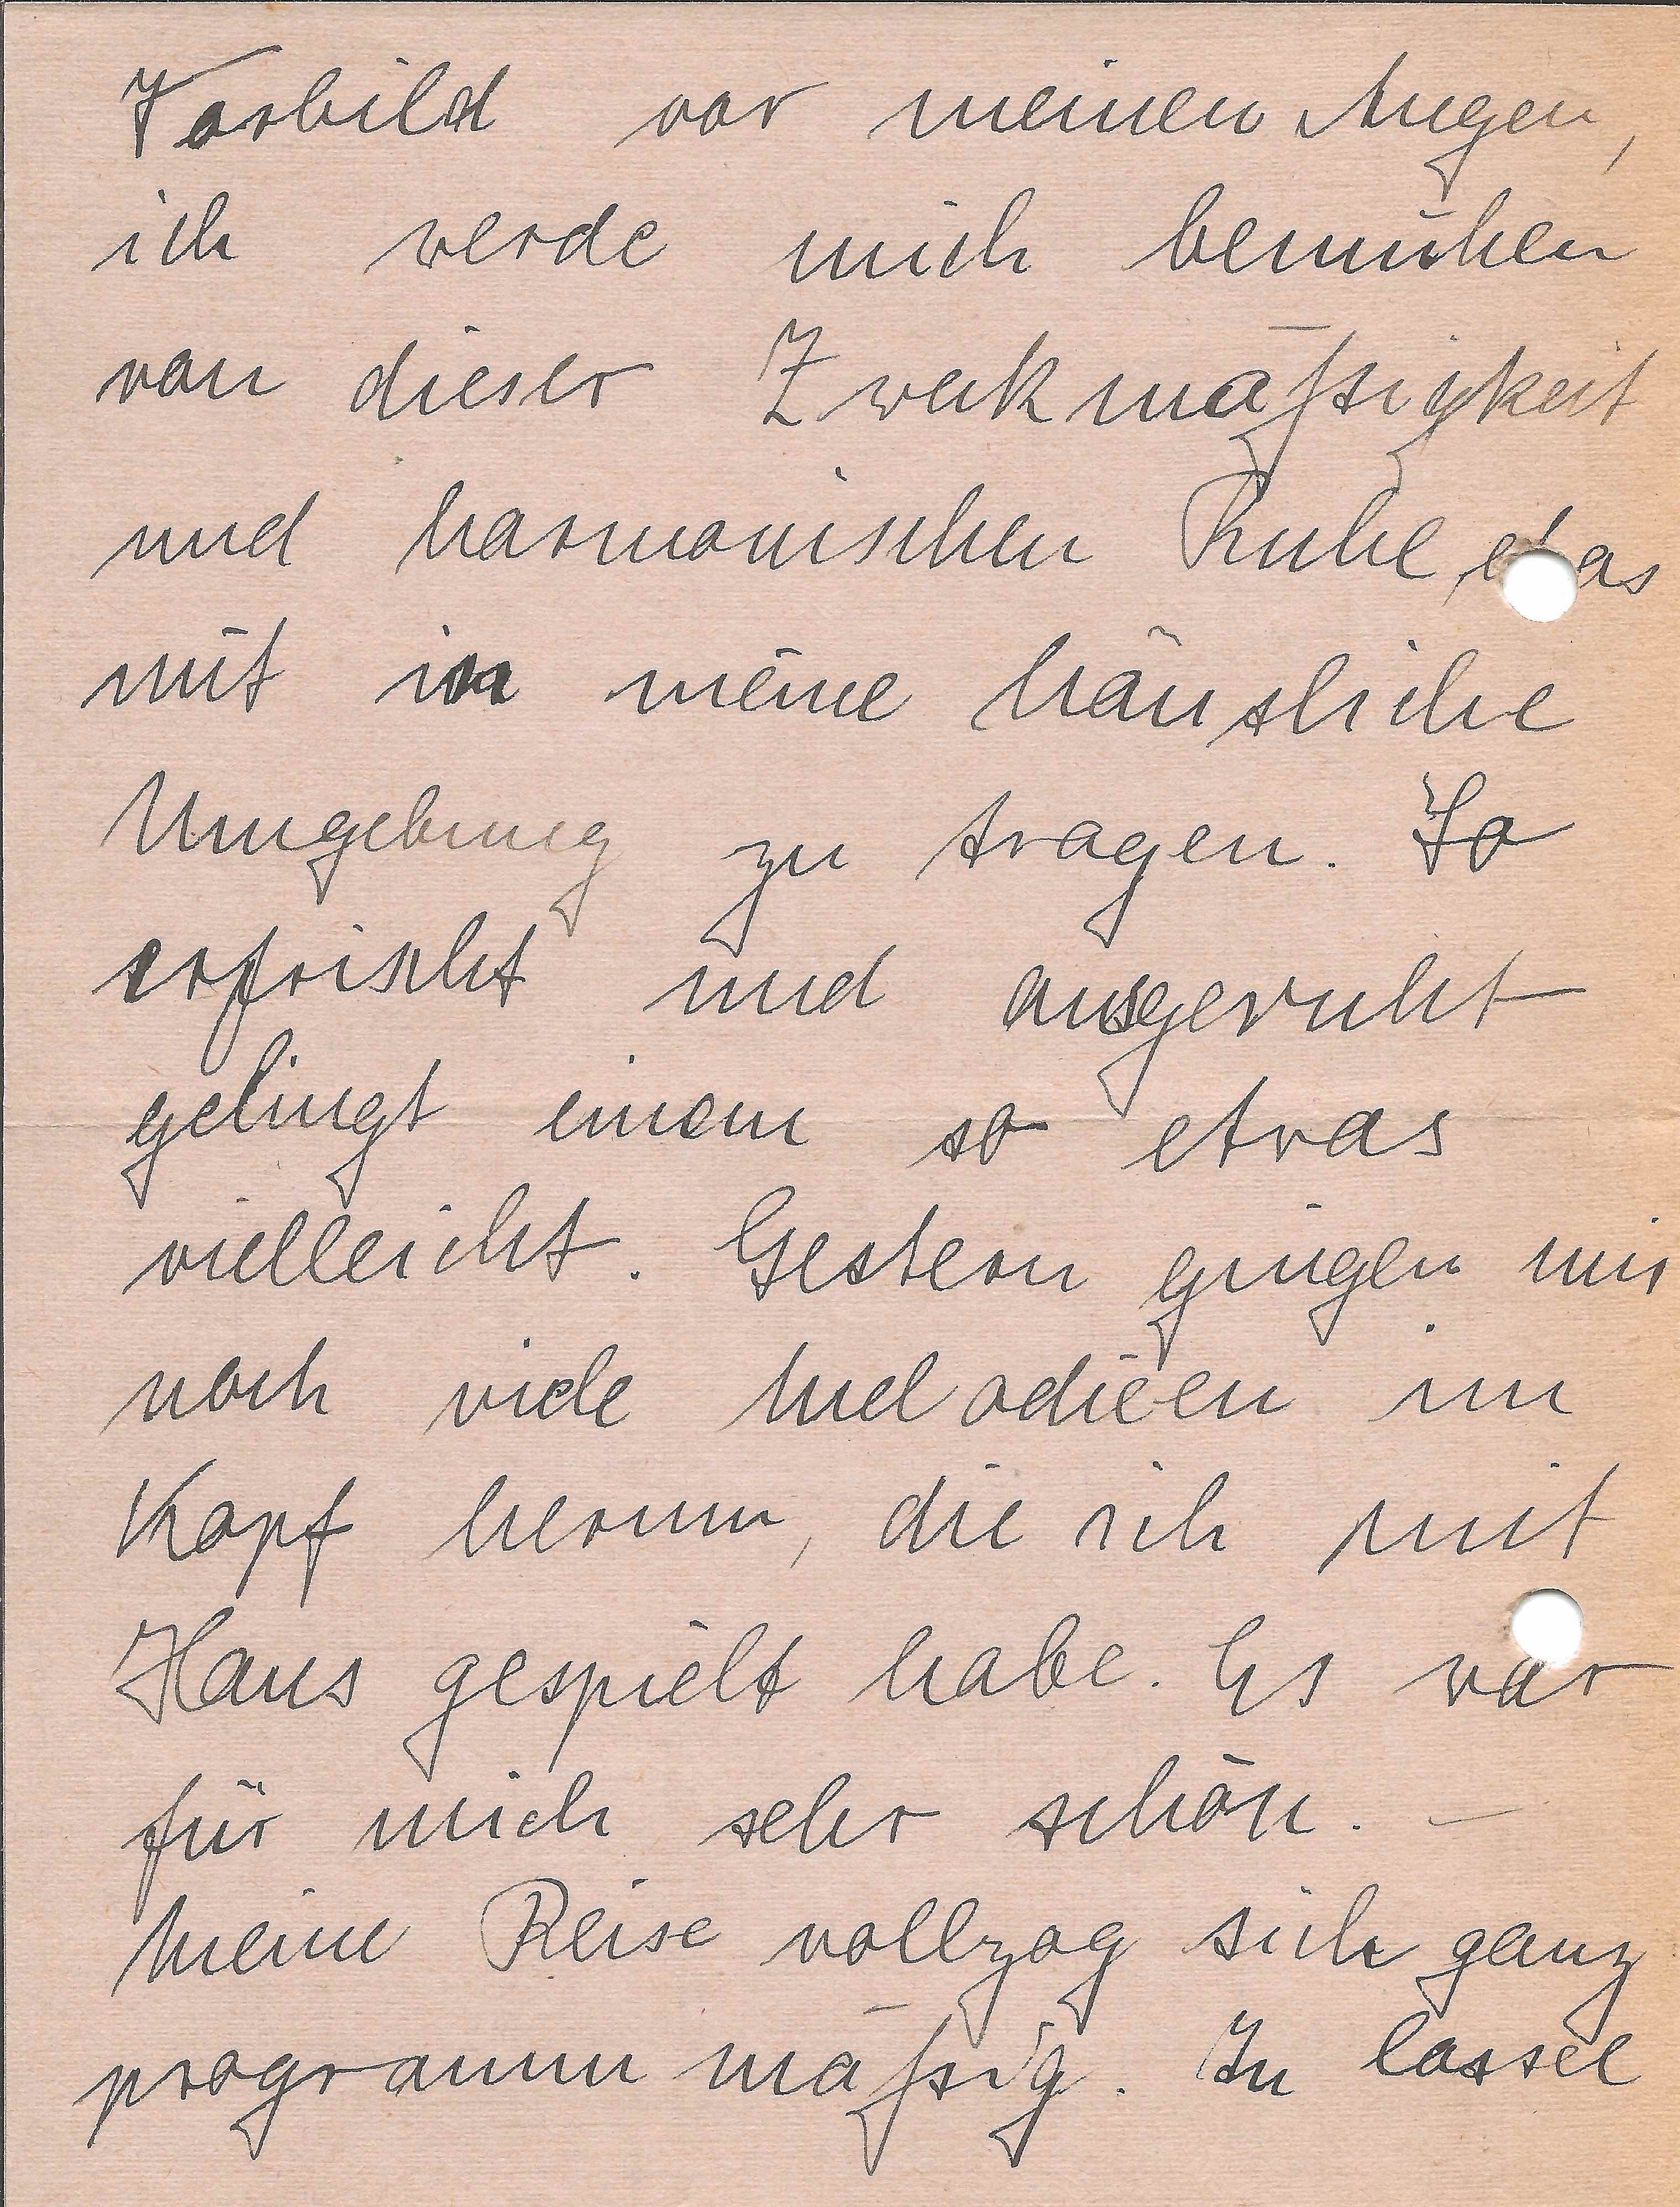 Vorbild vor meinen Augen,
ich werde mich bemühen
von dieser Zweckmäßigkeit
und harmonischen Ruhe etwas
mit in meine häusliche
Umgebung zu tragen. So
erfrischt und ausgeruht
gelingt einem so etwas
vielleicht. Gestern gingen mir
noch viele Melodieen im
Kopf herum, die ich mit
Hans gespielt habe. Es war
für mich sehr schön. –
Meine Reise vollzog sich ganz
programmmäßig. In Cassel